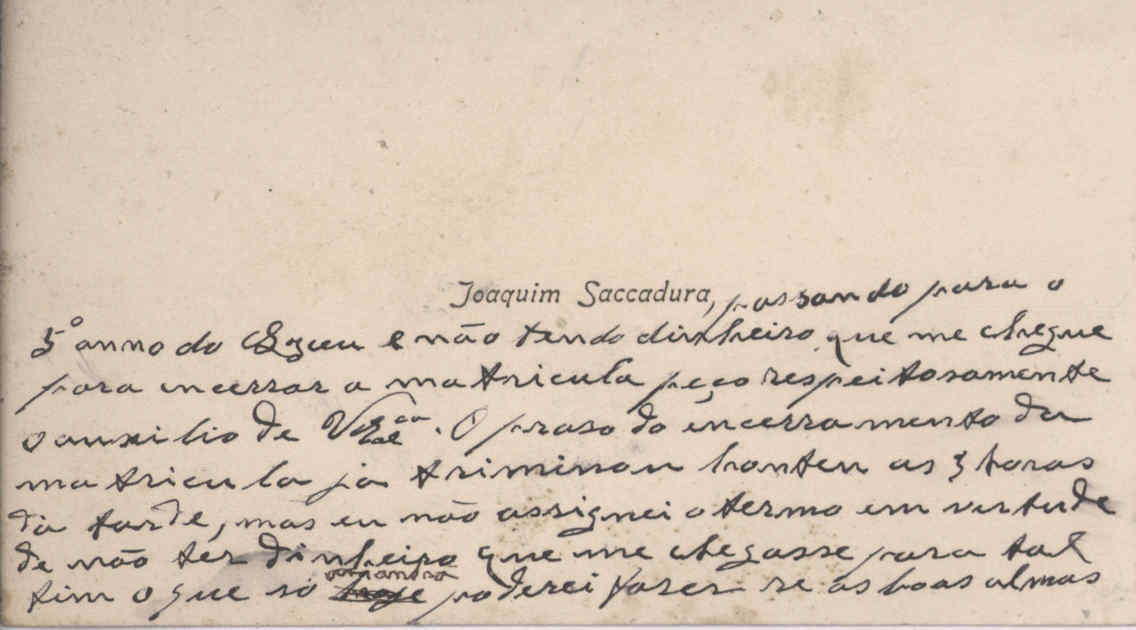 Joaquim Saccadura, passando para o
5º anno do Lyceu e não tendo dinheiro que me chegue
para incerrar a matricula peço respeitosamente
o auxilio de V. Exca. O praso do incerramento da
matricula já triminou hontem as 3 horas
da tarde, mas eu não assignei o termo em virtude
de não ter dinheiro que me chegasse para tal
fim o que só poderei fazer se as boas almas